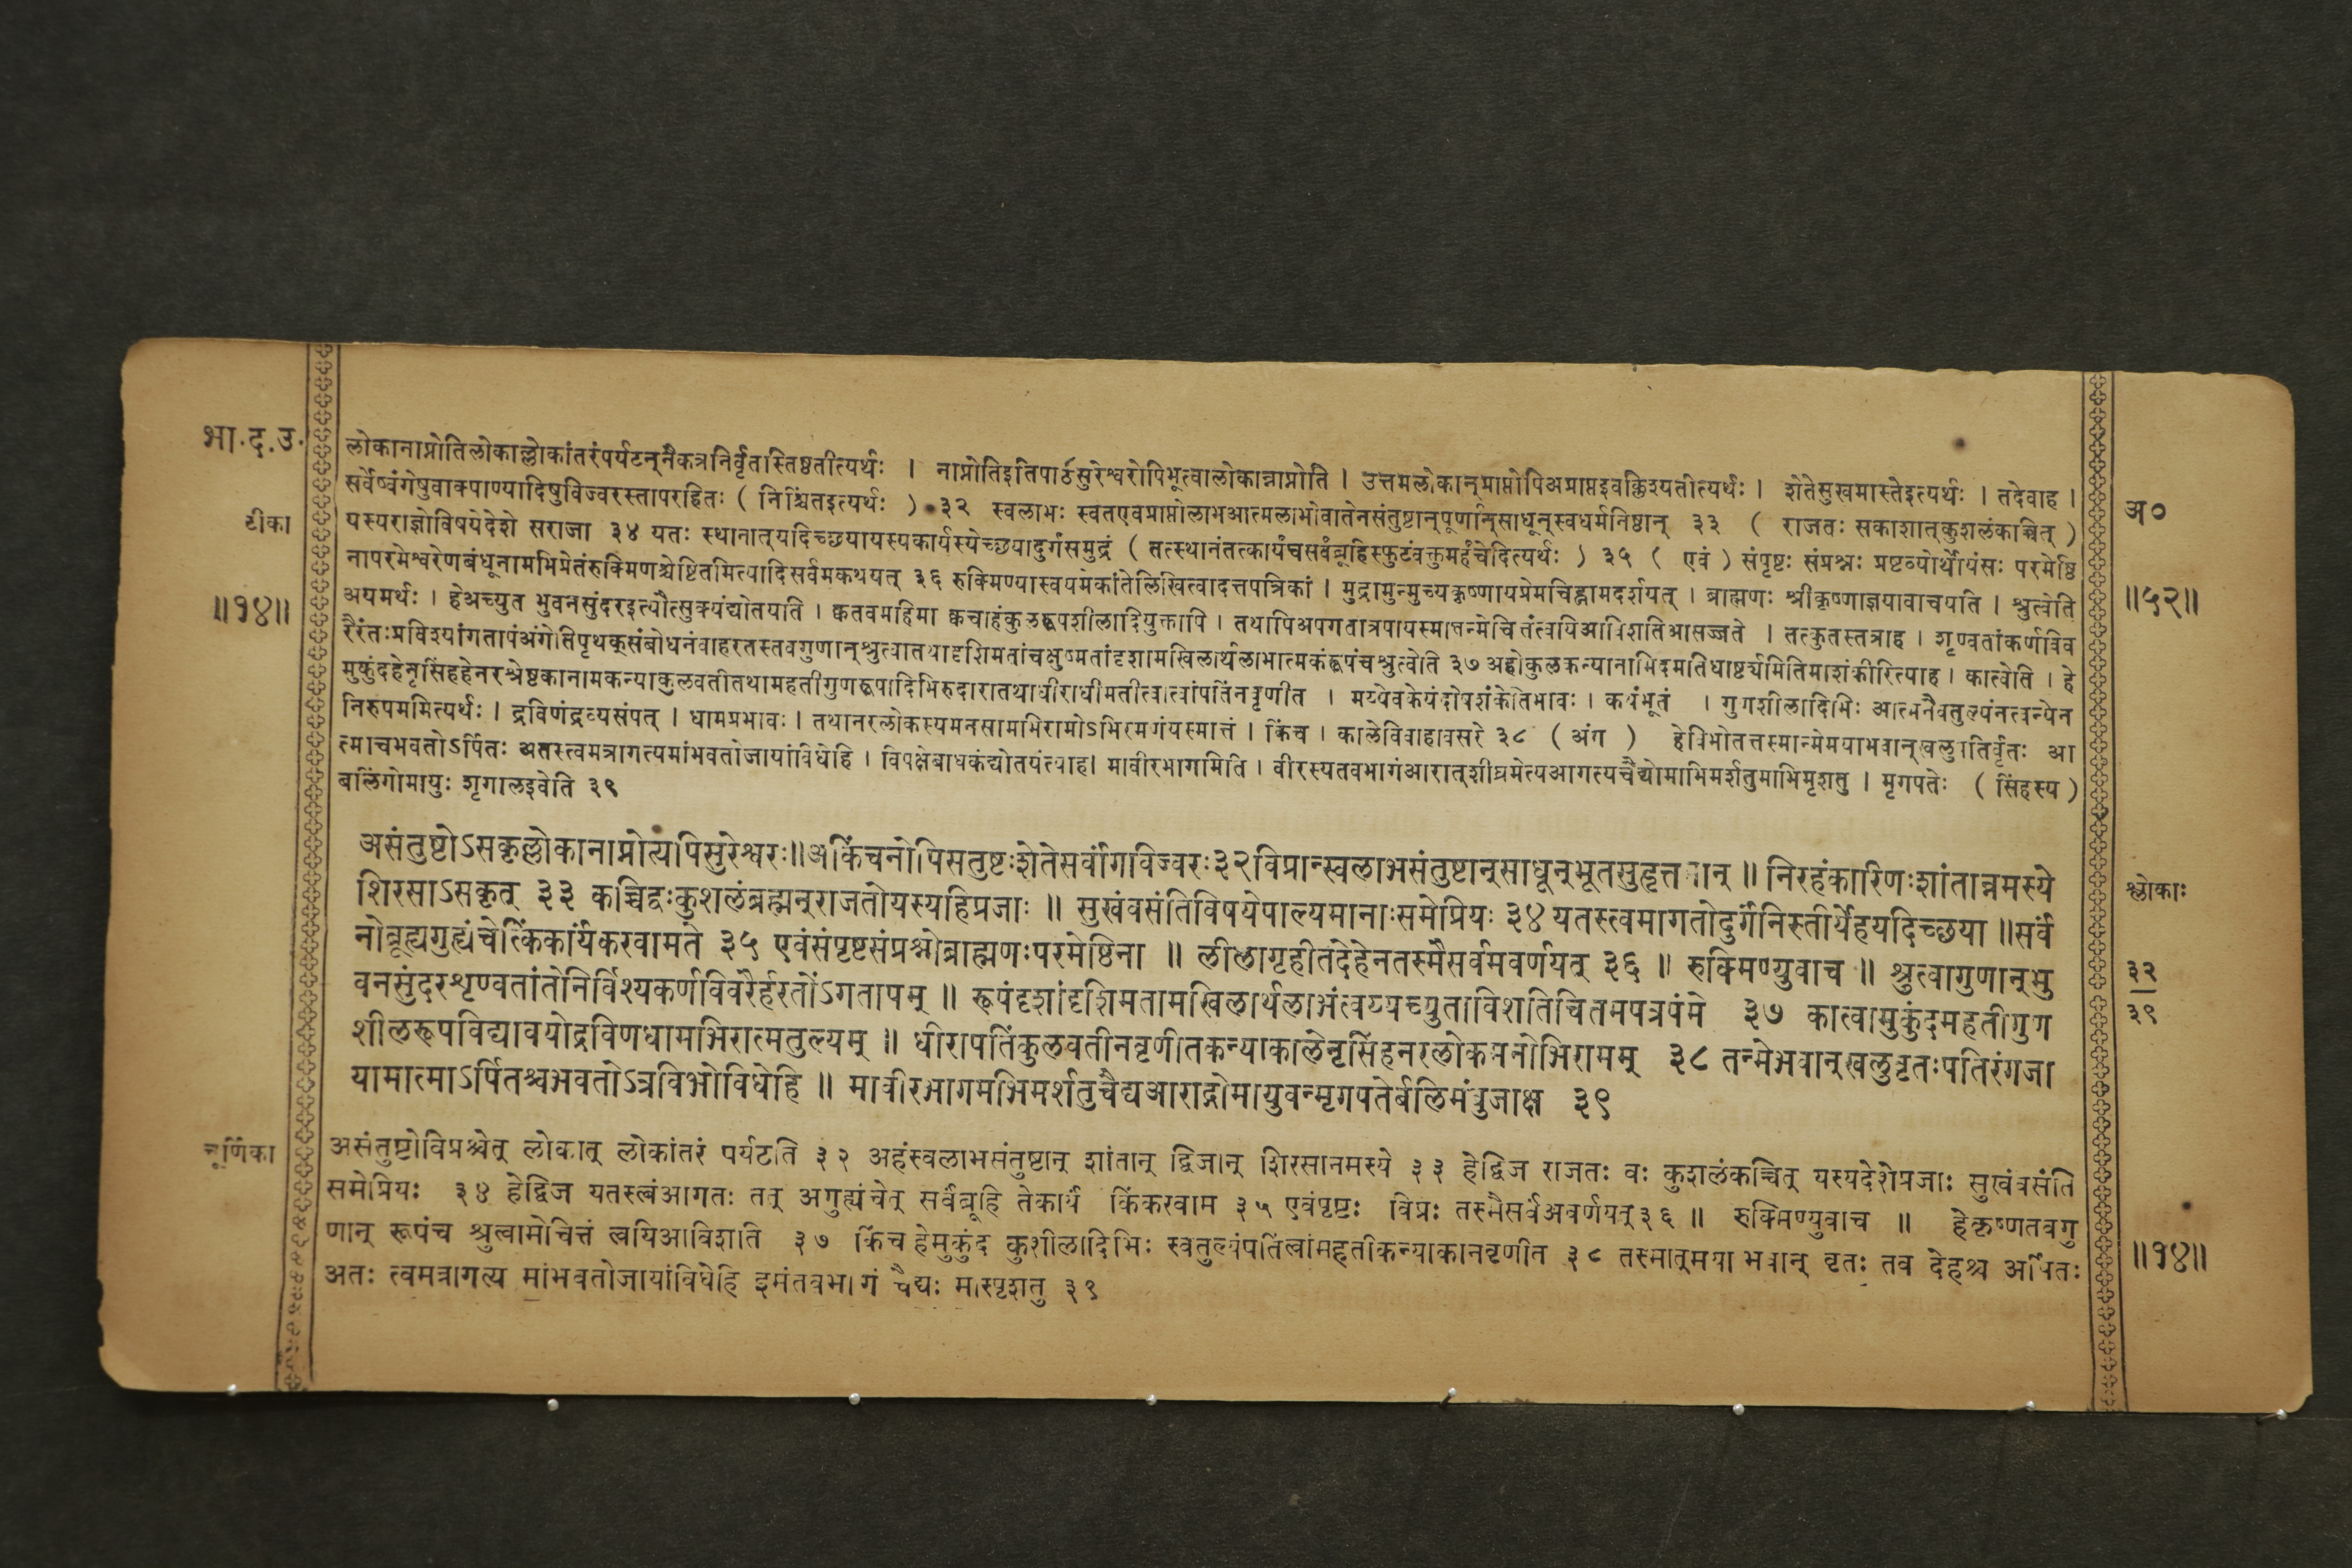 भा.द.उ.
टीका
॥१४॥
लोकानाप्नोतिलोकाल्लोकांतरंपर्यटन्नैकत्रनिर्वृतस्तिष्ठतीत्यर्थः । नाप्नोतिइतिपाठेसुरेश्वरोपिभूत्वालोकान्नाप्नोति । उत्तमलोकान्प्राप्तोपिअप्राप्तइवक्लिश्यतीत्यर्थः । शेतेसुखमास्तेइत्यर्थः । तदेवाह ।
सर्वेष्वंगेषुवाक्पाण्यादिषुविज्वरस्तापरहितः ( निश्चिंतइत्यर्थः ) ३२ स्वलाभः स्वतएवप्राप्तोलाभआत्मलाभोवातेनसंतुष्टान्पूर्णान्साधून्स्वधर्मनिष्ठान् ३३ ( राजतः सकाशात्कुशलंकाच्चित् )
यस्यराज्ञोविषयेदेशे सराजा ३४ यतः स्थानात्यदिच्छयायस्यकार्यस्येच्छयादुर्गंसमुद्रं ( तत्स्थानंतत्कार्यंचसर्वंब्रूहिस्फुटंवक्तुमर्हंचेदित्यर्थः ) ३५ ( एवं ) संपृष्टः संप्रश्नः प्रष्टव्योर्थोयंसः परमेष्ठि
नापरमेश्वरेणबंधूनामभिप्रेतंरुक्मिणश्चेष्टितमित्यादिसर्वमकथयत् ३६ रुक्मिण्यास्वयमेकांतेलिखित्वादत्तपत्रिकां । मुद्रामुन्मुच्यकृष्णायप्रेमचिह्नामदर्शयत् । ब्राह्मणः श्रीकृष्णाज्ञयावाचयति । श्रुत्वेति
अयमर्थः । हेअच्युत भुवनसुंदरइत्यौत्सुक्यंद्योतयति । क्वतवमहिमा क्वचाहंकुलरूपशीलादियुक्तापि । तथापिअपगतात्रपायस्मात्तन्मेचित्तंत्वयिआविशतिआसज्जते । तत्कुतस्तत्राह । शृण्वतांकर्णविव
रैरंतःप्रविश्यांगतापंअंगेतिपृथक्संबोधनंवाहरतस्तवगुणान्श्रुत्वातथादृशिमतांचक्षुष्मतांदृशामखिलार्थलाभात्मकंरूपंचश्रुत्वेति ३७ अहोकुलकन्यानाभिदमतिधार्ष्ट्यमितिमाशंकीरित्याह । कात्वेति । हे
मुकुंदहेनृसिंहहेनरश्रेष्ठकानामकन्याकुलवतीतथामहतीगुणरूपादिभिरुदारातथाधीराधीमतीत्वात्वांपतिंनवृणीत । मय्येवकेयंदोषशंकेतिभावः । कथंभूतं । गुणशीलादिभिः आत्मनैवतुल्यंनत्वन्येन
निरुपममित्यर्थः । द्रविणंद्रव्यसंपत् । धामप्रभावः । तथानरलोकस्यमनसामभिरामोऽभिरमणंयस्मात्तं । किंच । कालेविवाहावसरे ३८ ( अंग ) हेविभोतत्तस्मान्मेमयाभवान्खलुपतिर्वृतः आ
त्माचभवतोऽर्पितः अतस्त्वमत्रागत्यमांभवतोजायांविधेहि । विपक्षेबाधकंद्योतयंत्याह। मावीरभागमिति । वीरस्यतवभागंआरात्शीघ्रमेत्यआगत्यचैद्योमाभिमर्शतुमाभिमृशतु । मृगपतेः ( सिंहस्य )
बलिंगोमायुः शृगालइवेति ३९
अ०
॥५२॥
असंतुष्टोऽसकृल्लोकानाप्नोत्यपिसुरेश्वरः॥अकिंचनोपिसतुष्टःशेतेसर्वांगविज्वरः३२विप्रान्स्वलाभसंतुष्टान्साधून्भूतसुहृत्तमान् ॥ निरहंकारिणःशांतान्नमस्ये
शिरसाऽसकृत् ३३ कच्चिद्वःकुशलंब्रह्मन्राजतोयस्यहिप्रजाः ॥ सुखंवसंतिविषयेपाल्यमानाःसमेप्रियः ३४ यतस्त्वमागतोदुर्गंनिस्तीर्येहयदिच्छया ॥सर्वं
नोब्रूह्यगुह्यंचेत्किंकार्यंकरवामते ३५ एवंसंपृष्टसंप्रश्नोब्राह्मणःपरमेष्ठिना ॥ लीलागृहीतदेहेनतस्मैसर्वमवर्णयत् ३६ ॥ रुक्मिण्युवाच ॥ श्रुत्वागुणान्भु
वनसुंदरशृण्वतांतेनिर्विश्यकर्णविवरैर्हरतोंऽगतापम् ॥ रूपंदृशांदृशिमतामखिलार्थलाभंत्वय्यच्युताविशतिचित्तमपत्रपंमे ३७ कात्वामुकुंदमहतीगुण
शीलरूपविद्यावयोद्रविणधामभिरात्मतुल्यम् ॥ धीरापतिंकुलवतीनवृणीतकन्याकालेनृसिंहनरलोकमनोभिरामम् ३८ तन्मेभवान्खलुवृतःपतिरंगजा
यामात्माऽर्पितश्चभवतोऽत्रविभोविधेहि ॥ मावीरभागमभिमर्शतुचैद्यआराद्गोमायुवन्मृगपतेर्बलिमंबुजाक्ष ३९
श्लोकाः
३२
३९
चूर्णिका
असंतुष्टोविप्रश्चेत् लोकात् लोकांतरं पर्यटति ३२ अहंस्वलाभसंतुष्टान् शांतान् द्विजान् शिरसानमस्ये ३३ हेद्विज राजतः वः कुशलंकच्चित् यस्यदेशेप्रजाः सुखंवसंति
समेप्रियः ३४ हेद्विज यतस्त्वंआगतः तत् अगुह्यंचेत् सर्वंब्रूहि तेकार्यं किंकरवाम ३५ एवंपृष्टः विप्रः तस्मैसर्वंअवर्णयत्३६ ॥ रुक्मिण्युवाच ॥ हेकृष्णतवगु
णान् रूपंच श्रुत्वामेचित्तं त्वयिआविशति ३७ किंच हेमुकुंद कुशीलादिभिः स्वतुल्यंपतिंत्वांमहतीकन्याकानवृणीत ३८ तस्मात्मया भवान् वृतः तव देहश्च अर्पितः
अतः त्वमत्रागत्य मांभवतोजायांविधेहि इमंतवभागं चैद्यः मास्पृशतु ३९
॥१४॥